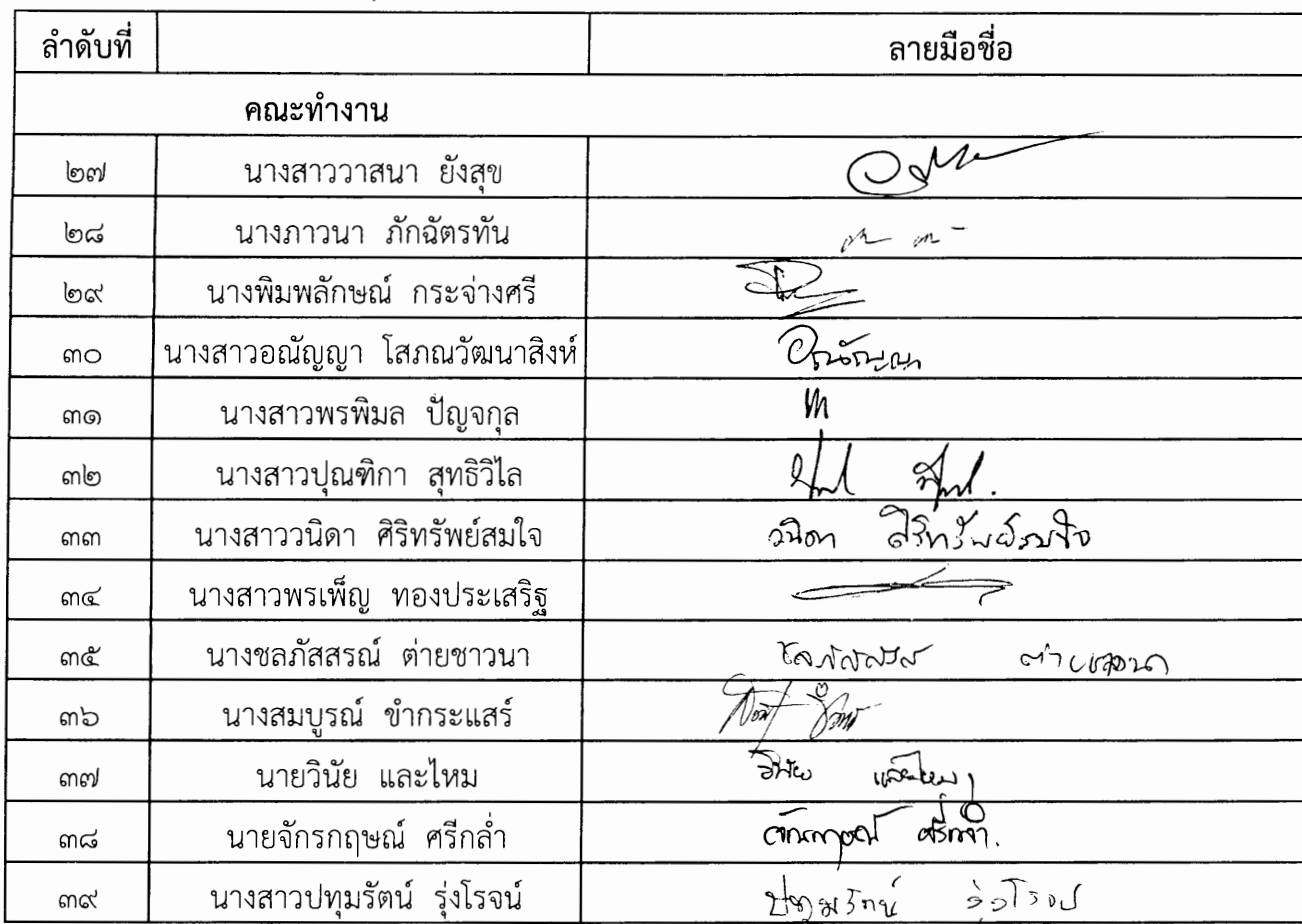 ลำดับที่ ลายมือชื่อ
คณะทำงาน
๒๗ นางสาววาสนา ยังสุข
๒๘ นางภาวนา ภักฉัตรทัน
๒๙ นางพิมพลักษณ์ กระจ่างศรี
๓๐ นางสาวอณัญญา โสภณวัฒนาสิงห์ อณัญญา
๓๑ นางสาวพรพิมล ปัญจกุล
๓๒ นางสาวปุณฑิกา สุทธิวิไล
๓๓ นางสาววนิดา ศิริทรัพย์สมใจ วนิดา ศิริทรัพย์สมใจ
๓๔ นางสาวพรเพ็ญ ทองประเสริฐ
๓๕ นางชลภัสสรณ์ ต่ายชาวนา ต่ายชาวนา
๓๖ นางสมบูรณ์ ขำกระแสร์
๓๗ นายวินัย และไหม วินัย และไหม
๓๘ นายจักรกฤษณ์ ศรีกล่ำ จักรกฤษณ์ ศรีกล่ำ
๓๙ นางสาวปทุมรัตน์ รุ่งโรจน์ ปทุมรัตน์